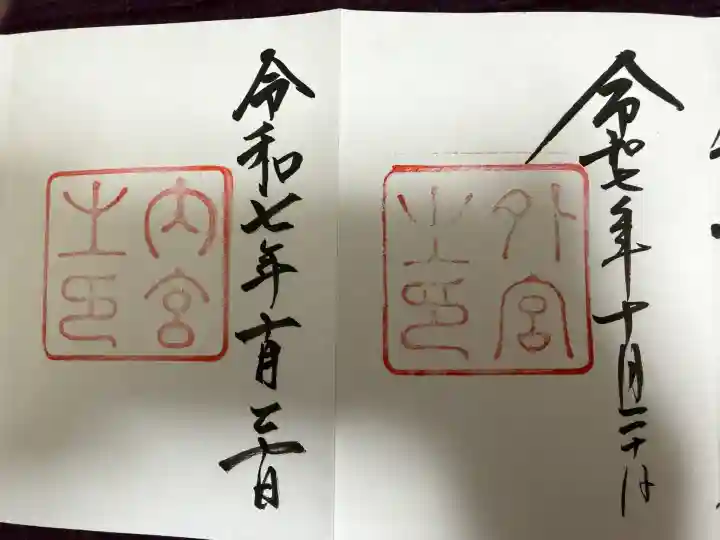 令和七年十月二十日
外宮之印
令和七年十月二十日
内宮之印